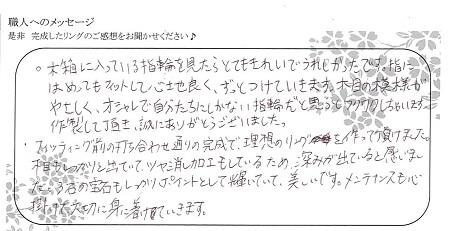 職人へのメッセージ
是非 完成したリングのご感想をお聞かせください♪
。木箱に入っている指輪を見たらとてもきれいでうれしかったです。指に
はめてもフィットして心地良く、ずっとつけていきます。木目の模様が
やさしく、オシャレで自分たちにしかない指輪だと思うとワクワクしちゃいます。
作製して頂き、誠にありがとうございました。
・フィッティング前の打ち合わせ通りの完成で理想のリングを作って頂けました。
木目もしっかりと出ていて、ツヤ消し加工もしているため、深みが出ていると感じまし
た。3石の宝石もしっかりポイントとして輝いていて、美しいです。メンテナンスも心
掛けて大切に身に着けていきます。